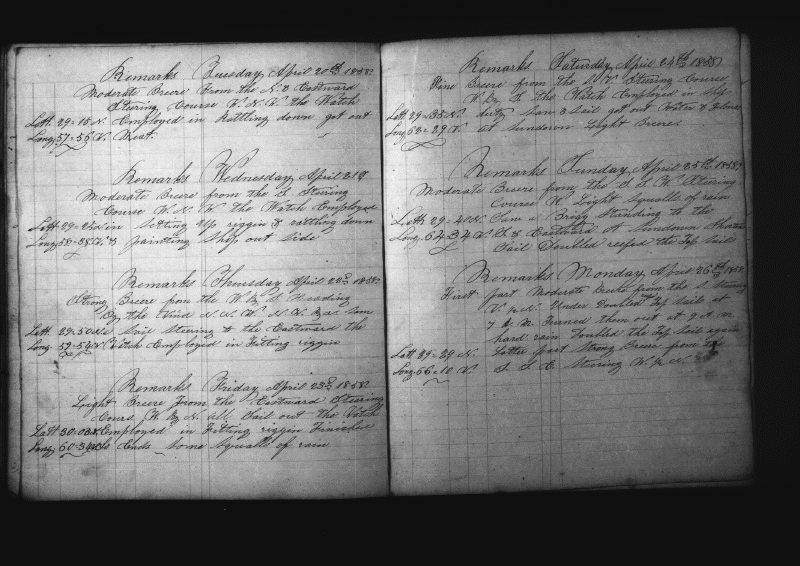 Remarks Tuesday April 20th 1858
Moderate Breeze from the N & Eastward
Stering Course W. N. W. the Watch
Latt 29=15 N. Employed in Rattling down got out
Long 57=55 W. Meat.
Remarks Wednesday April 21st
Moderate Breeze from the S Steering
Course W. N. W. the Watch Employed
Latt 29=25 in Setting Up riggin & rattling down
Long 58=38 W. & painting Ship out side
Remarks Thursday April 22d 1858
Strong Breeze from the W. & S. Heading
By the Wind N. N. W. N. W. & at
Latt 29=50 Sail Steering to the Eastward the
Long 59=54 W. Watch Employed in Fitting riggin
Remarks Friday April 23d 1858
Light Breeze from the Eastward Steering
Cours W. by N all Sail out the Watch
Latt 30=03 N. Employed in Fitting riggin Finishes
Long 60=34 Ends some Squalls of rain
Remarks Saturday, April 24th 1858
Fine Breeze from the Stering Course
W. by the Watch Employed in Ship
Latt 29=35 N. duty Saw 3 Sail got out Water &
Long 62=29 W. at Sundown Light Breeze
Remarks Sunday April 25th 1858
Moderate Breeze from the S. S. W. Steering
Course W. Light Squalls of rain
Latt 29=41 N. Saw a Brigg Standing to the
Long 64=34 W. S. & Eastward at Sundown
Sail Doubled reefed the Top Sails
Remarks Monday, April 26th 1858
First part Moderate Breeze from the S. Steering
W. by N. Under Doubled Top Sails at
7 A. M. Turned them out at 9 A. M.
hard rain Doubled the Top Sails again
Latt 29=29 N. Latter part Strong Breeze from the
Long 66=10 W. S. S. E Steering W. by N.